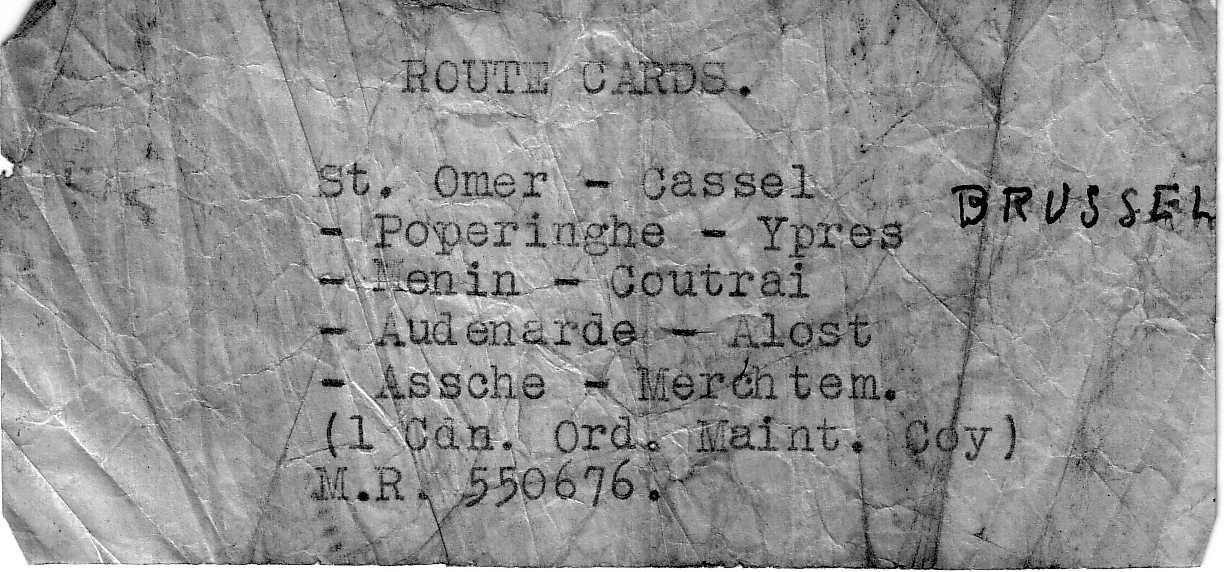 ROUTE CARDS.
St. Omer - Cassel
BRUSSEL
- Poperinghe - Ypres
- Menin - Coutrai
- Audenarde - Alost
- Assche - Merchtem.
(1 Cdn. Ord. Maint. Coy)
M.R. 550676.